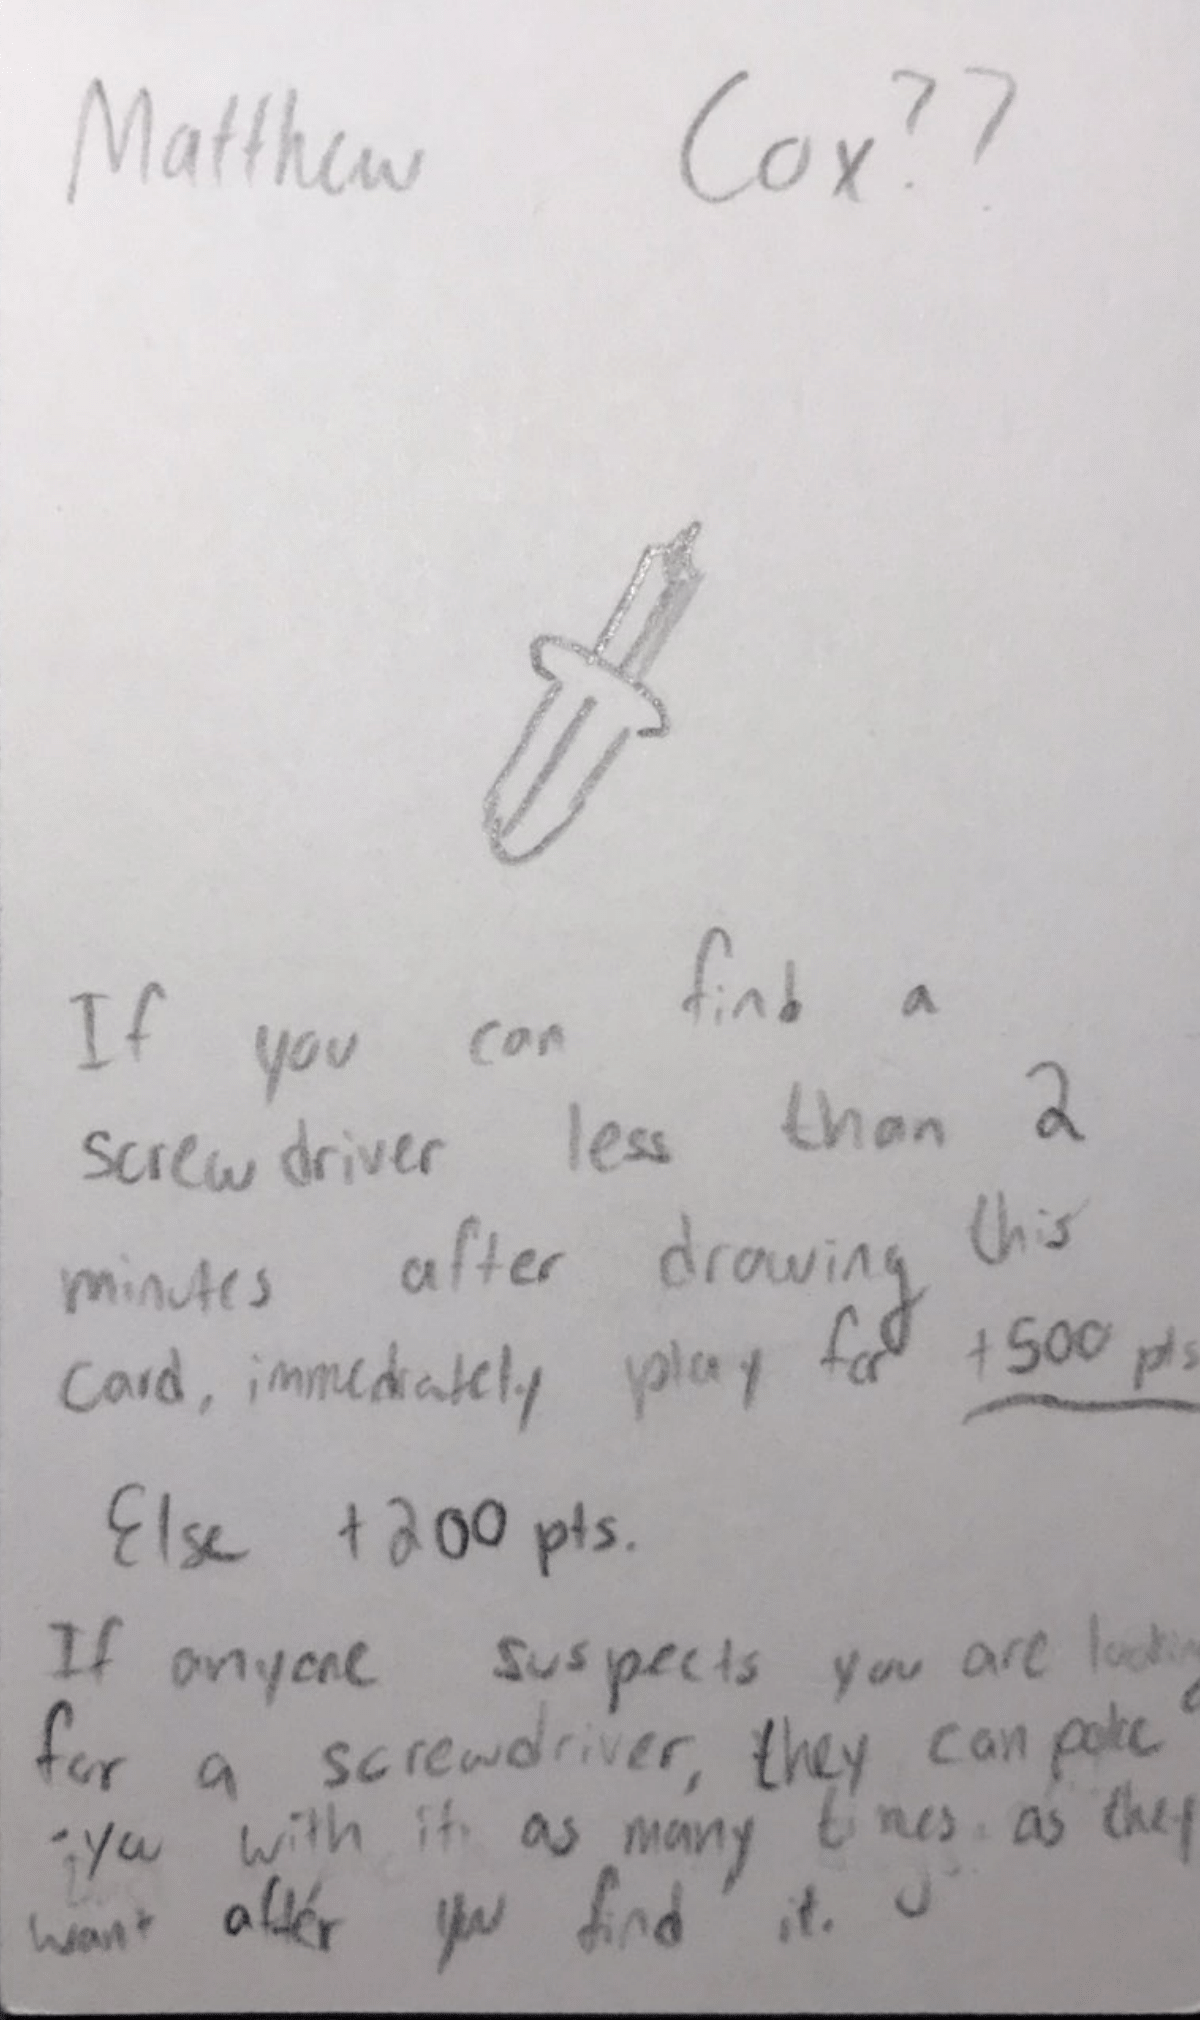 Matthew Cox??
If you can find a
screwdriver less than 2
minutes after drawing this
card, immediately play for +500 pts
Else +200 pts.
If anyone suspects you are looking
for a screwdriver, they can poke
you with it as many times as they
want after you find it.